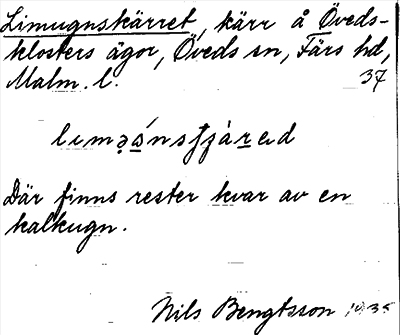 Limugnskärret, kärr å Öveds-
klosters ägor, Öveds sn, Färs hd,
Malm. l. 37
Där finns rester kvar av en
kalkugn.
Nils Bengtsson 1935